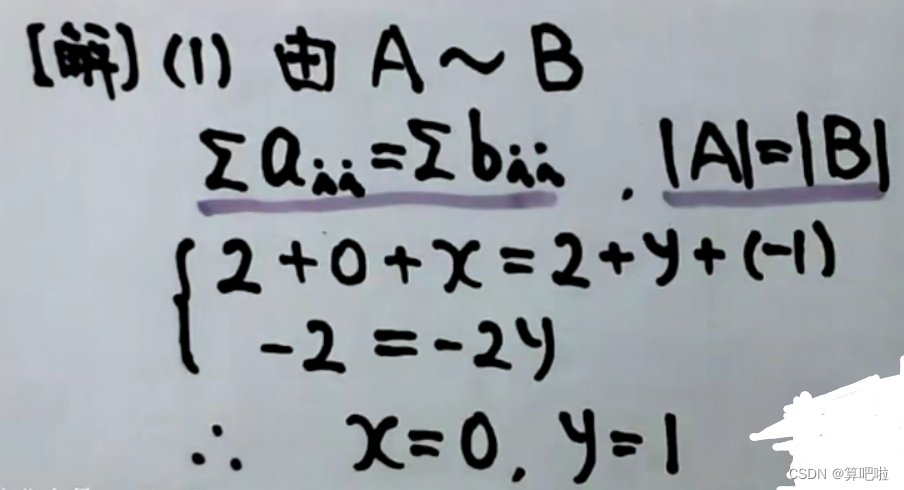 [解] (1) 由 A ~ B
Σaᵢᵢ=Σbᵢᵢ , |A|=|B|
2+0+x=2+y+(-1)
-2=-2y
∴ x=0, y=1
CSDN @算吧啦